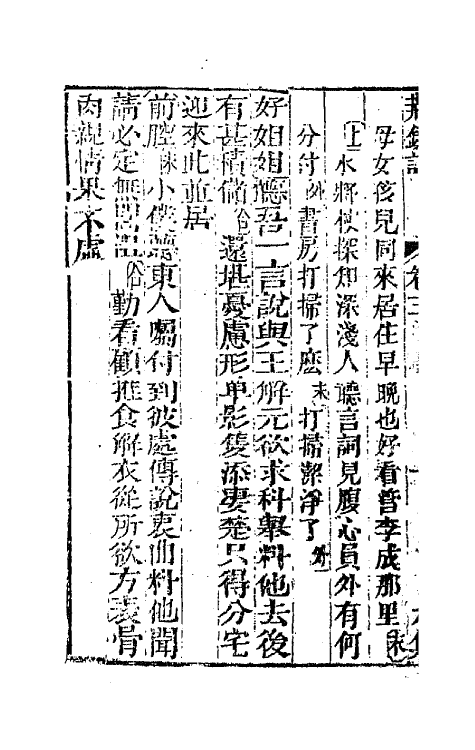 荆釵記 卷三
母女孩兒同來居住早晚也好看管李成那里末
上水將杖探知深淺人聽言詞見腹心員外有何
分付外書房打掃了麽末打掃潔淨了外
好姐姐聽吾一言說與王解元欲求科舉料他去後
有甚積儲合還堪憂慮形單影隻添凄楚只得分宅
迎來此並居
前腔末小僕蒙東人囑付到彼處傳說衷曲料他聞
請必定無間阻合勤看顧推食解衣從所欲方表骨
肉親情果不虛